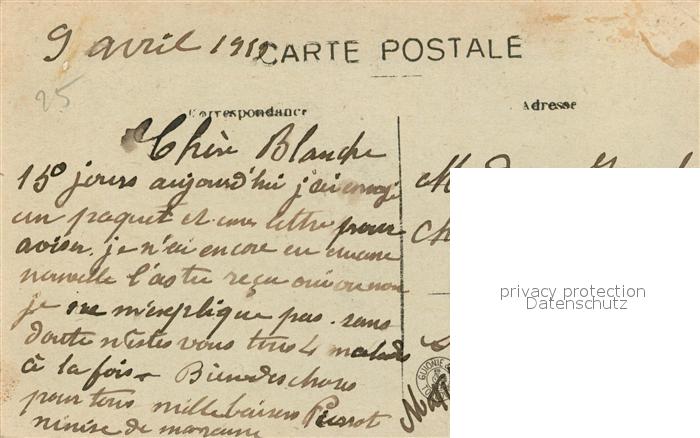 9 avril
CARTE POSTALE
25
Correspondance
Adresse
Chère Blanche
15 jours aujourd'hui j'ai envoyé
un paquet et une lettre pour
aviser. je n'ai encore eu aucune
nouvelle l'as tu reçu oui ou non
je ne m'explique pas. sans
doute n'êstes vous tous 4 malades
à la fois. Bien des choses
pour tous mille baisers Pierrot
ninise de marraine
privacy protection
Datenschutz